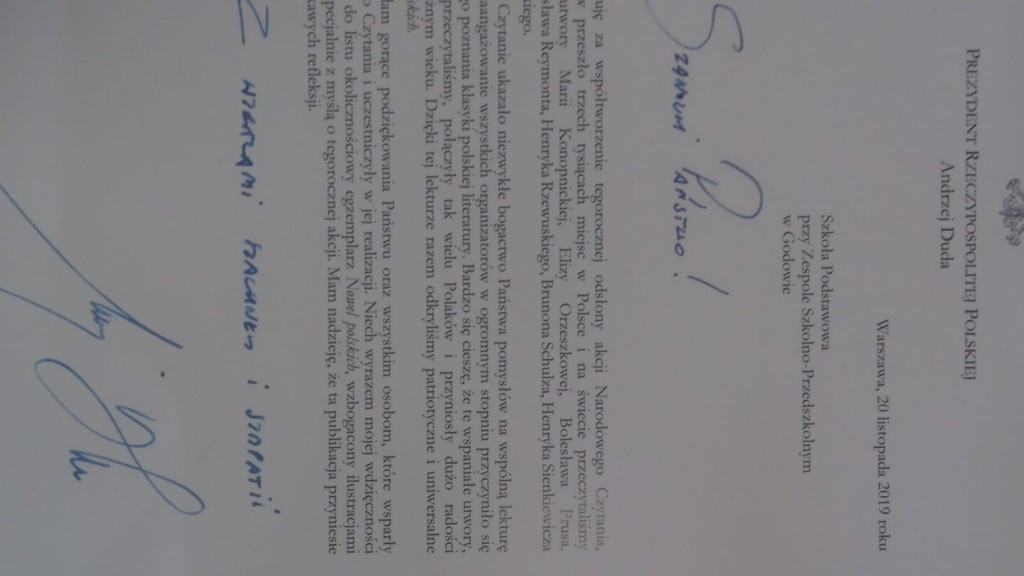 PREZYDENT RZECZYPOSPOLITEJ POLSKIEJ
Andrzej Duda
Warszawa, 20 listopada 2019 roku
Szkoła Podstawowa
przy Zespole Szkolno-Przedszkolnym
w Godowie
Szanowni Państwo!
uję za współtworzenie tegorocznej odsłony akcji Narodowego Czytania,
w przeszło trzech tysiącach miejsc w Polsce i na świecie przeczytaliśmy
utwory Marii Konopnickiej, Elizy Orzeszkowej, Bolesława Prusa,
sława Reymonta, Henryka Rzewuskiego, Brunona Schulza, Henryka Sienkiewicza
iego.
Czytanie ukazało niezwykłe bogactwo Państwa pomysłów na wspólną lekturę
aangażowanie wszystkich organizatorów w ogromnym stopniu przyczyniło się
o poznania klasyki polskiej literatury. Bardzo się cieszę, że te wspaniałe utwory,
przeczytaliśmy, połączyły tak wielu Polaków i przyniosły dużo radości
żnym wieku. Dzięki tej lekturze razem odkryliśmy patriotyczne i uniwersalne
lskich.
dam gorące podziękowania Państwu oraz wszystkim osobom, które wsparły
o Czytania i uczestniczyły w jej realizacji. Niech wyrazem mojej wdzięczności
do listu okolicznościowy egzemplarz Nowel polskich, wzbogacony ilustracjami
pecjalnie z myślą o tegorocznej akcji. Mam nadzieję, że ta publikacja przyniesie
kawych refleksji.
Z wyrazami szacunku i sympatii